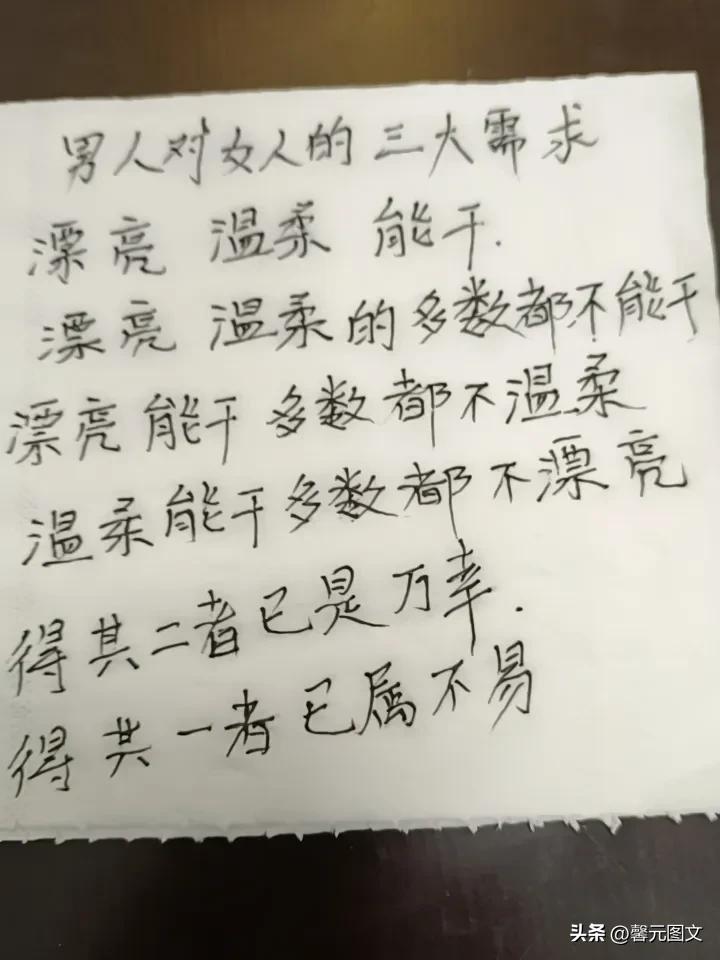 男人对女人的三大需求
漂亮 温柔 能干.
漂亮 温柔的多数都不能干
漂亮能干 多数都不温柔
温柔能干多数都不漂亮
得其二者已是万幸.
得其一者已属不易
头条 @馨元图文